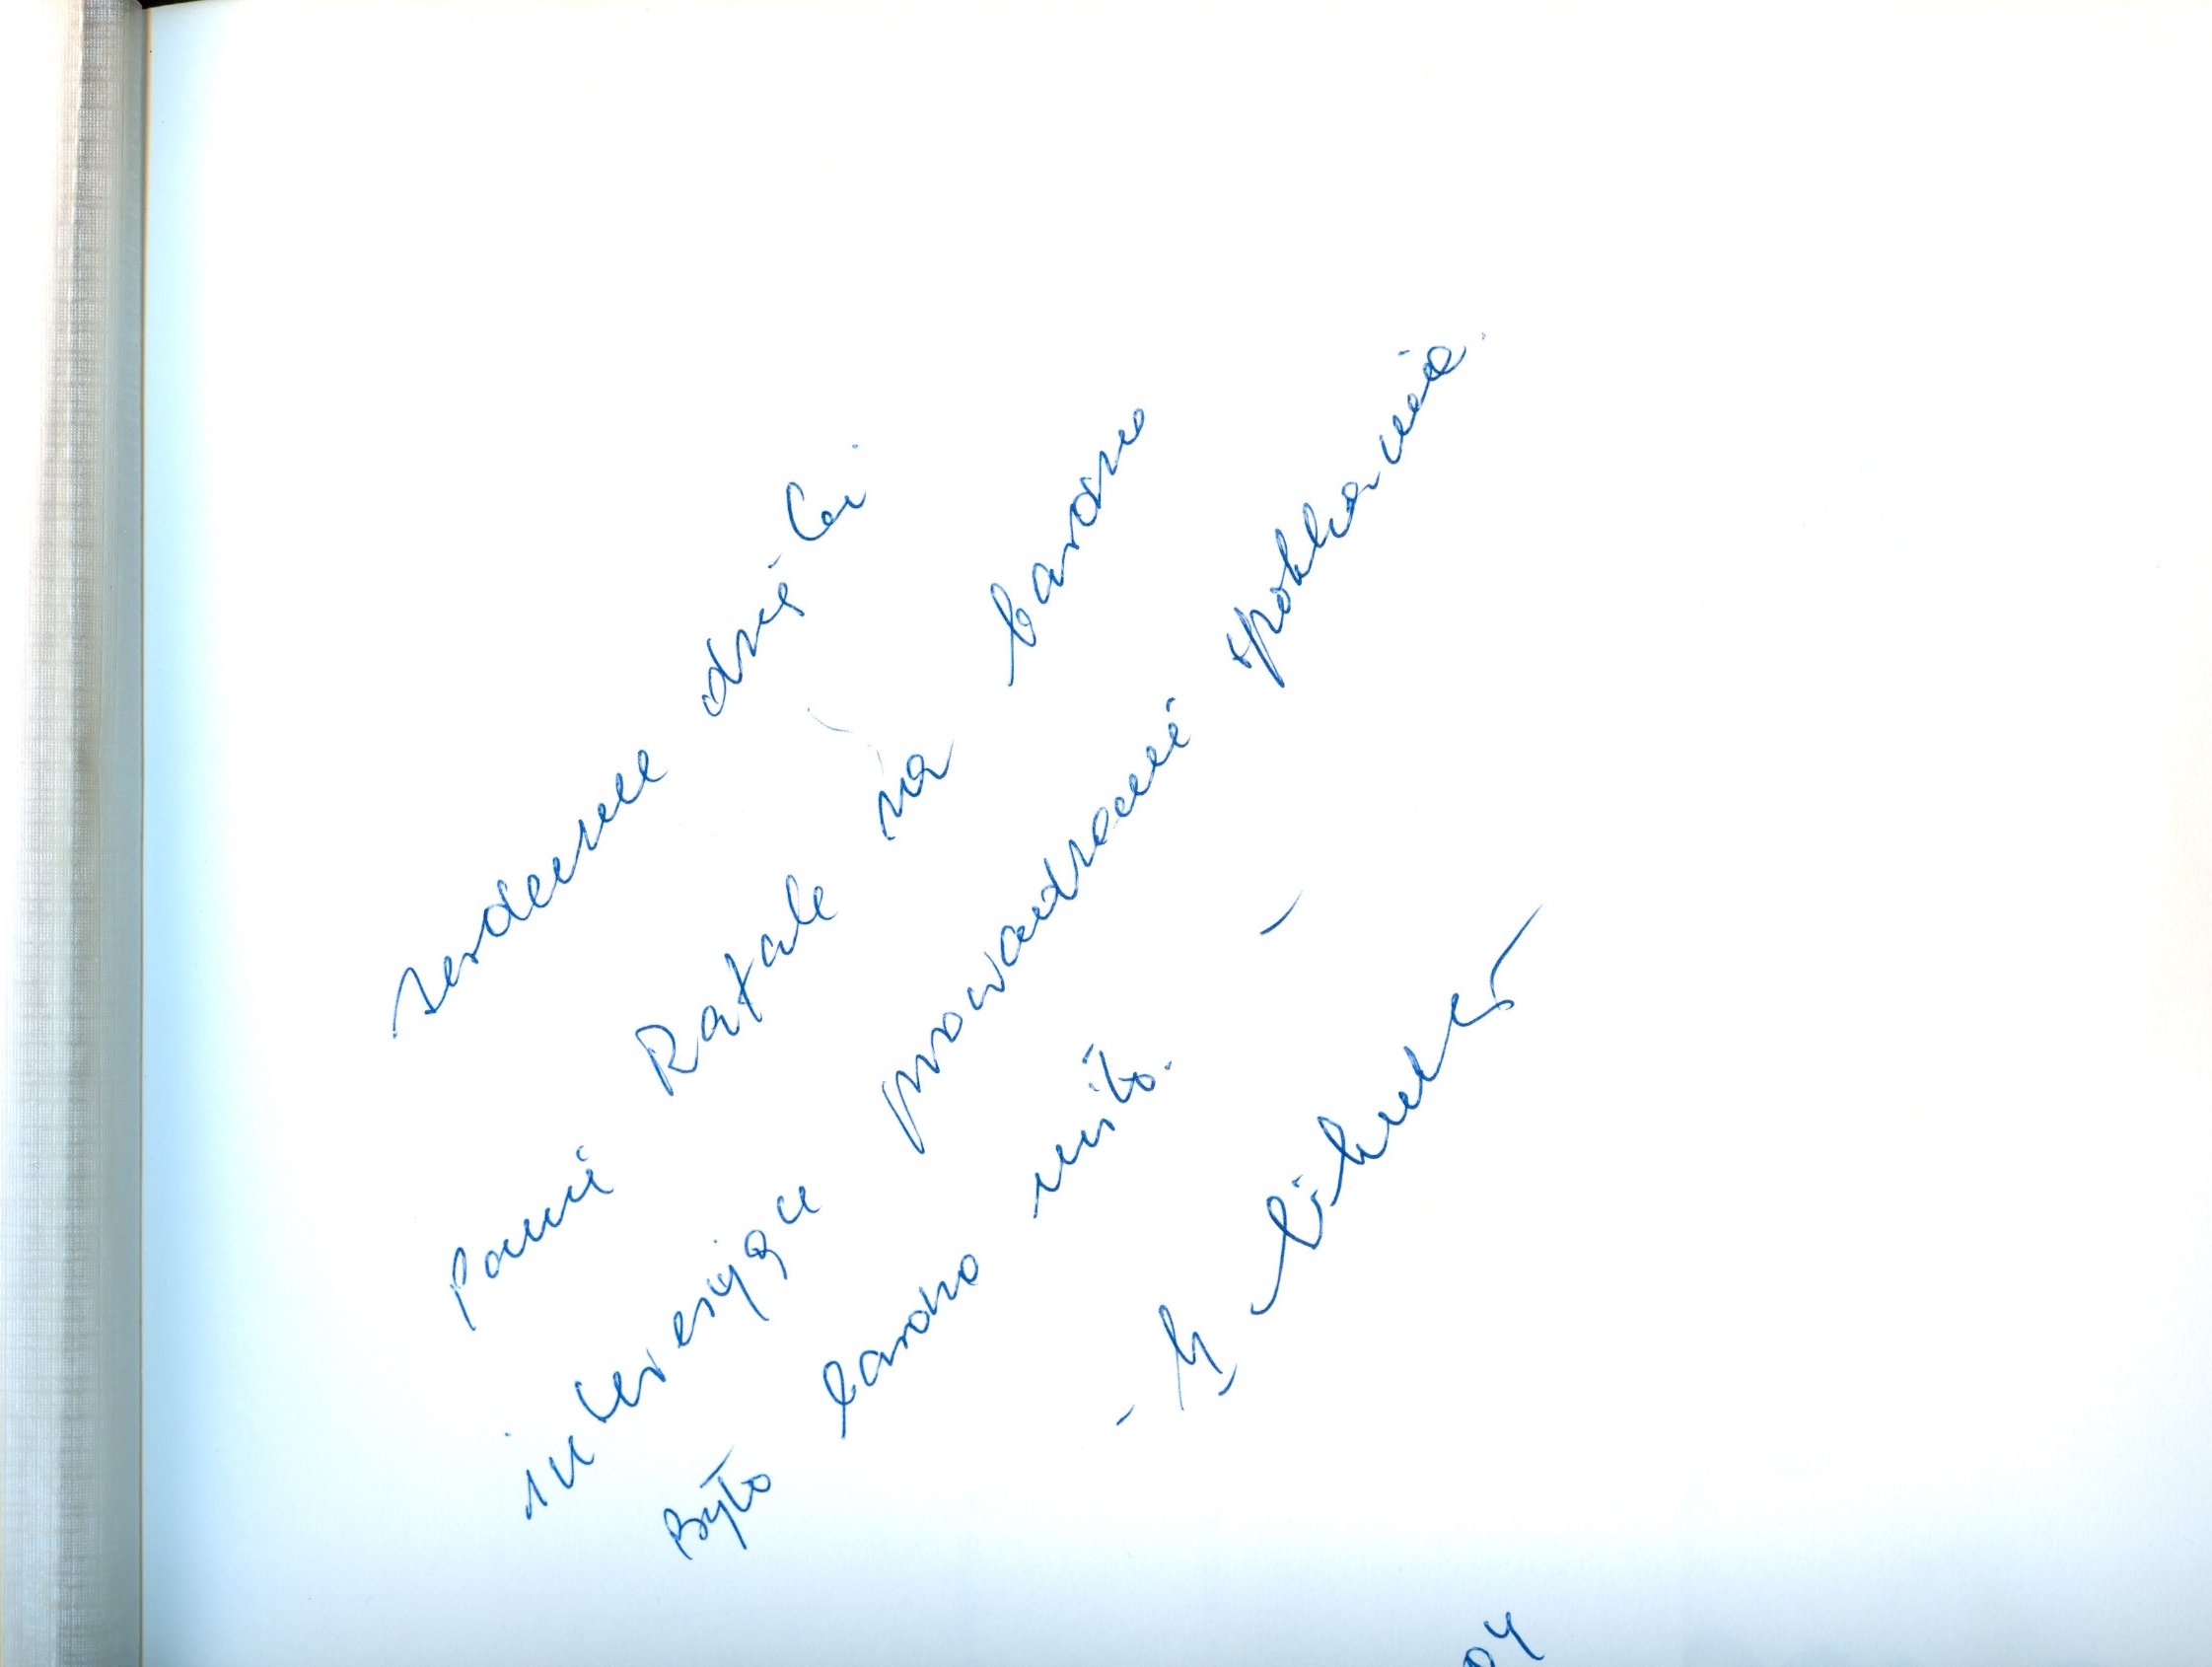 serdeczne dzięki
Panie Rafale za bardzo
interesujące prowadzenie spotkania.
Było bardzo miło. -
- M.
04